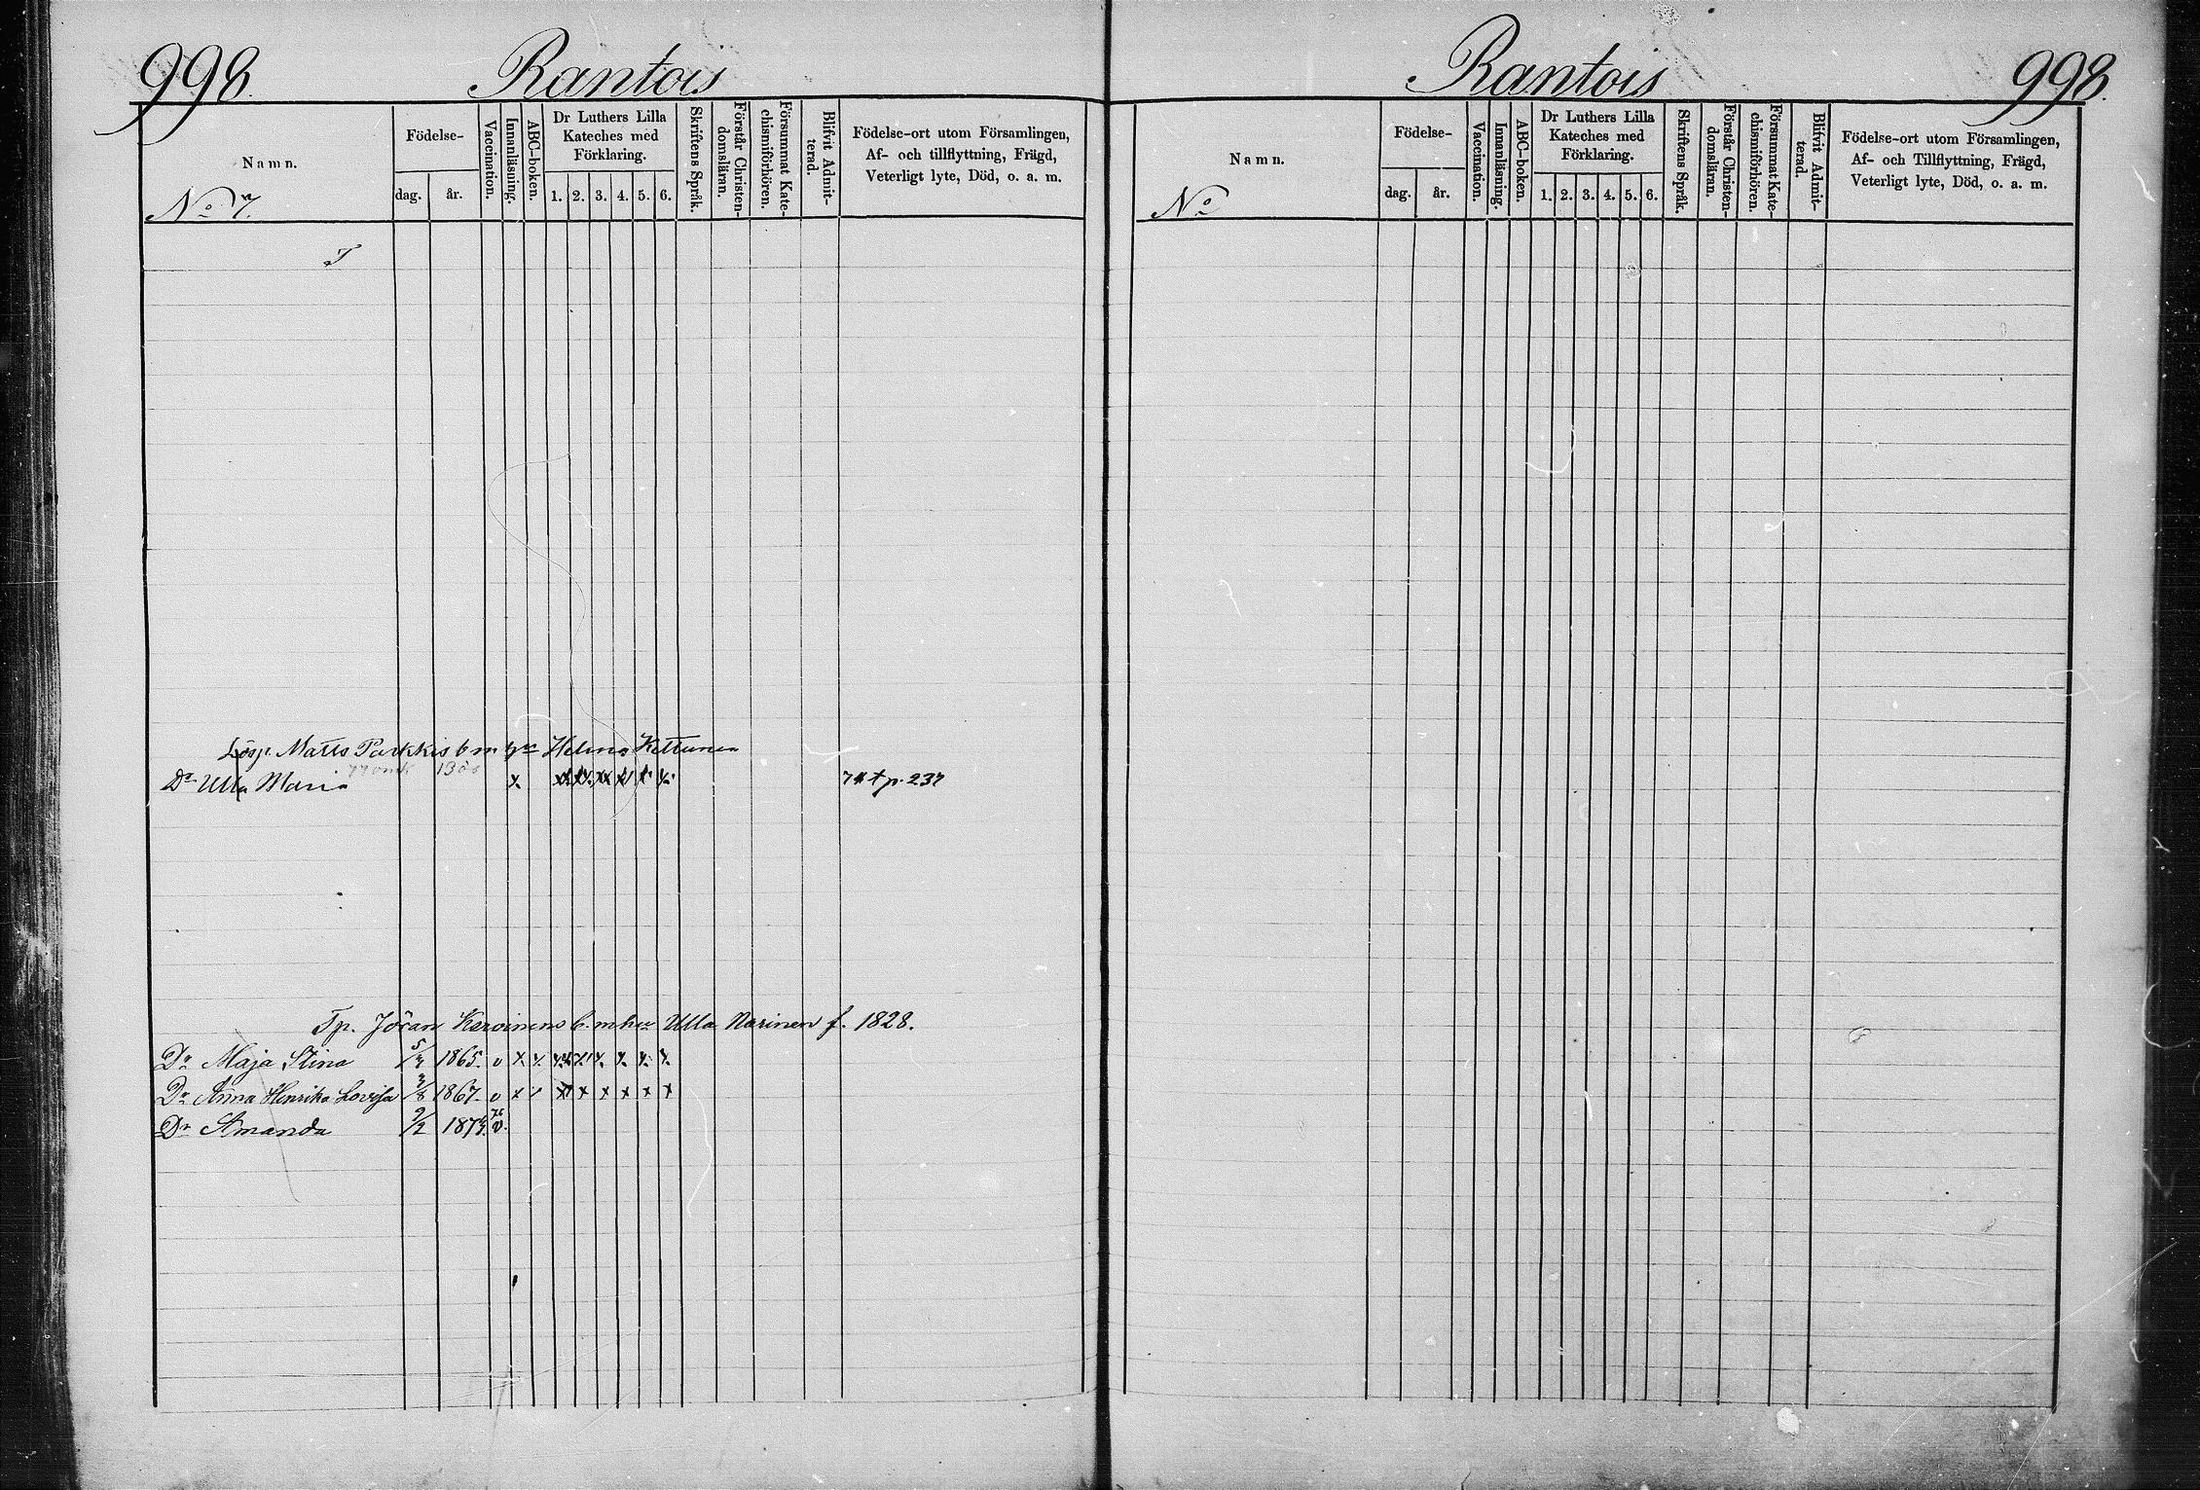 998. Rantois
Namn.
No 7.
Födelse-
dag. år.
Vaccination.
Innanläsning.
ABC-boken.
Dr Luthers Lilla Kateches med Förklaring.
1. 2. 3. 4. 5. 6.
Skriftens Språk.
Förstår Christendomsläran.
Försummat Katechismiförhören.
Blifvit Admitterad.
Födelse-ort utom Församlingen,
Af- och tillflyttning, Frägd,
Veterligt lyte, Död, o. a. m.
Lösp. Matts Parkkis
Dr Ulla Maria x 74 t p. 237
Tp. Jöran Ulla Narinen f. 1828.
Dr Maja Stina 1865. v x x
Dr Anna Henrika Lovisa 3/8 1867. v x x x x x x x
Dr Amanda 9/2
Rantois 998.
Namn.
No
Födelse-
dag. år.
Vaccination.
Innanläsning.
ABC-boken.
Dr Luthers Lilla Kateches med Förklaring.
1. 2. 3. 4. 5. 6.
Skriftens Språk.
Förstår Christendomsläran.
Försummat Katechismiförhören.
Blifvit Admitterad.
Födelse-ort utom Församlingen,
Af- och Tillflyttning, Frägd,
Veterligt lyte, Död, o. a. m.